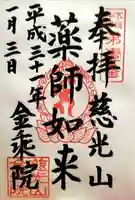 奉拝
慈光山
薬師如来
金乘院
平成三十一年
一月三日